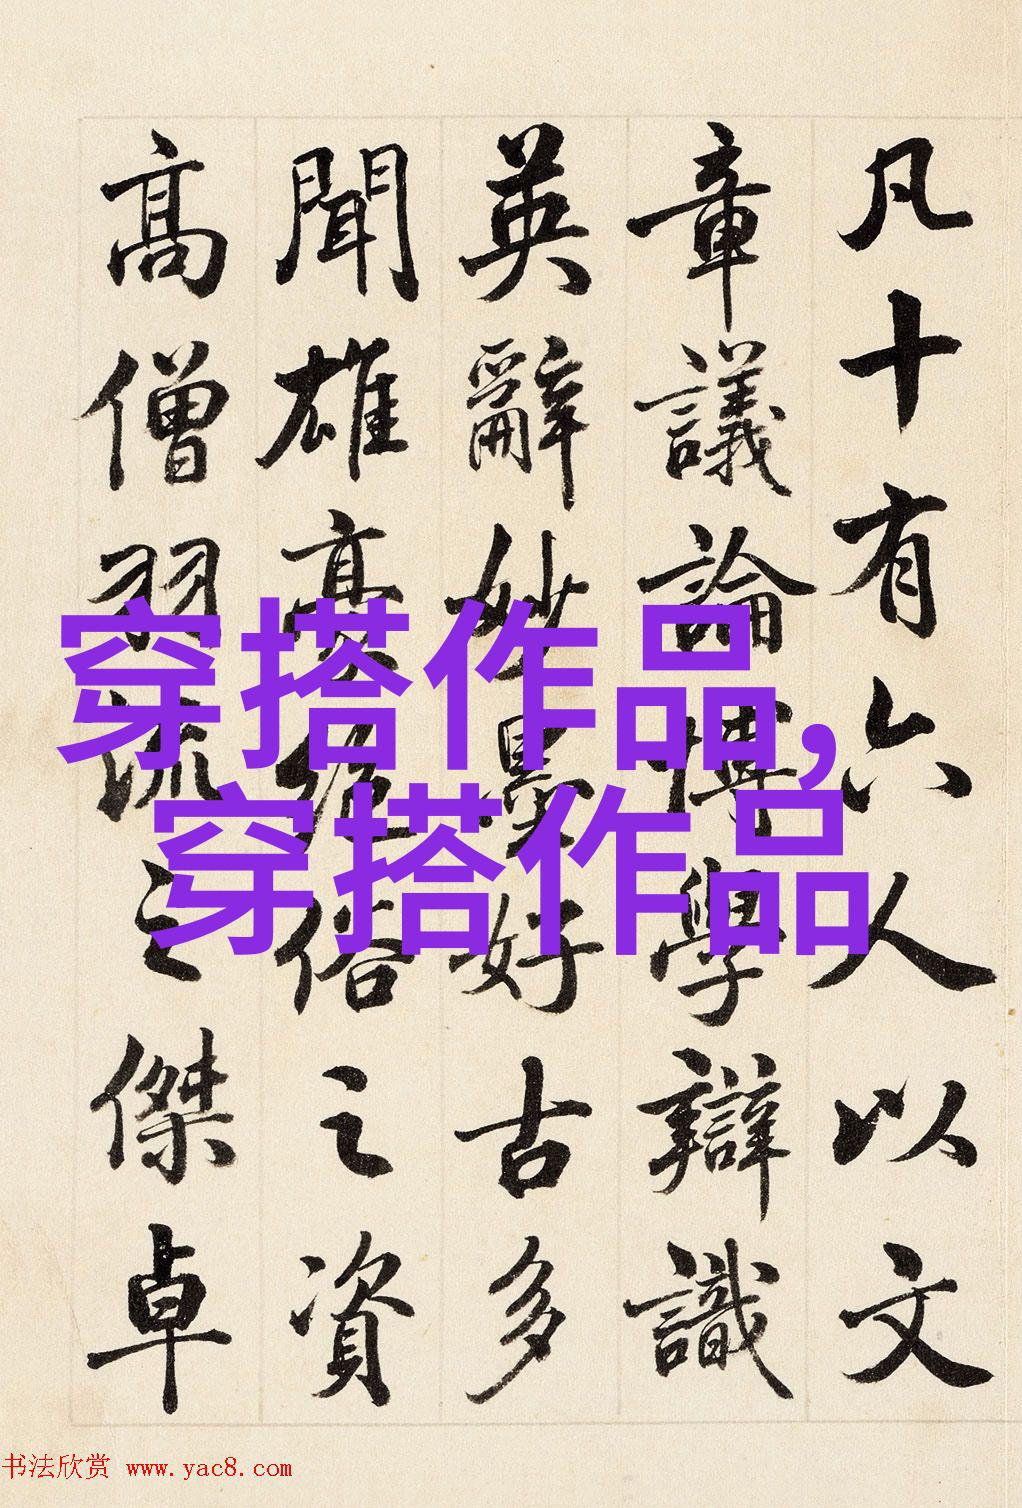 凡十有六人以文
章議論博學辯識
英辭妙墨好古多
聞雄豪絕俗之資
高僧羽流之傑卓
穿搭作品,
穿搭作品
书法欣赏 www.yac8.com